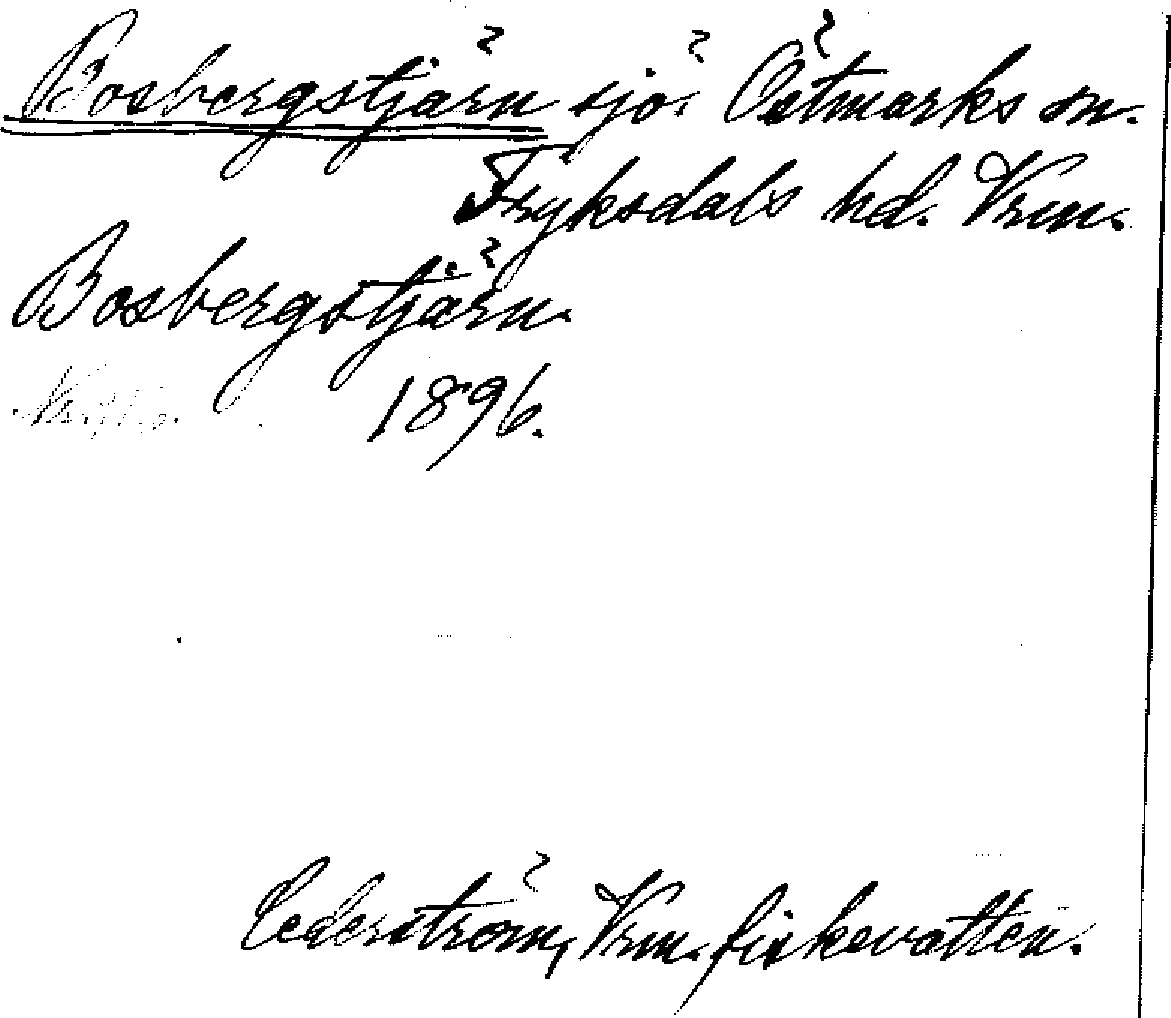 Bosbergstjärn sjö. Östmarks sn.
Fryksdals hd. Vrm.
Bosbergstjärn.
1896.
Cederström, Vrm. fiskevatten.